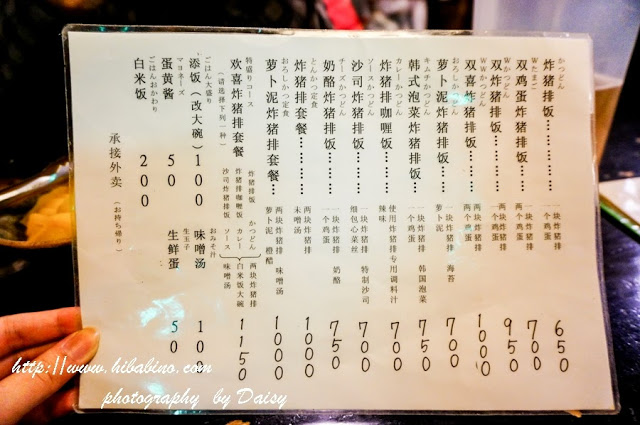 かつどん
炸猪排饭……… 一块炸猪排 一个鸡蛋 650
Wたまご
双鸡蛋炸猪排饭… 一块炸猪排 两个鸡蛋 700
Wかつどん
双炸猪排饭…… 两块炸猪排 一个鸡蛋 950
WWかつどん
双喜炸猪排饭… 两块炸猪排 两个鸡蛋 1000
おろしかつどん
萝卜泥炸猪排饭… 一块炸猪排 海苔 萝卜泥 700
キムチかつどん
韩式泡菜炸猪排饭 一块炸猪排 韩国泡菜 一个鸡蛋 750
カレーかつどん
炸猪排咖喱饭… 使用炸猪排专用调料汁 辣味 700
ソースかつどん
沙司炸猪排饭… 一块炸猪排 特制沙司 细包心菜丝 700
チーズかつどん
奶酪炸猪排饭… 一块炸猪排 奶酪 一个鸡蛋 750
とんかつ定食
炸猪排套餐…… 两块炸猪排 未噌汤 1000
おろしかつ定食
萝卜泥炸猪排套餐… 两块炸猪排 味噌汤 萝卜泥 橙醋 1000
特盛りコース
欢喜炸猪排套餐 1150
(请选择下列一种)
炸猪排饭 かつどん
炸猪排咖喱饭 カレー
沙司炸猪排饭 ソース
两块炸猪排
白米饭大碗
味噌汤
ごはん大盛り
添饭(改大碗) 100
おみそ汁
味噌汤 100
マヨネーズ
蛋黄酱 50
生玉子
生鲜蛋 50
ごはんおかわり
白米饭 200
承接外卖 (お持ち帰り)
http://www.hibabino.com/
photography by Daisy